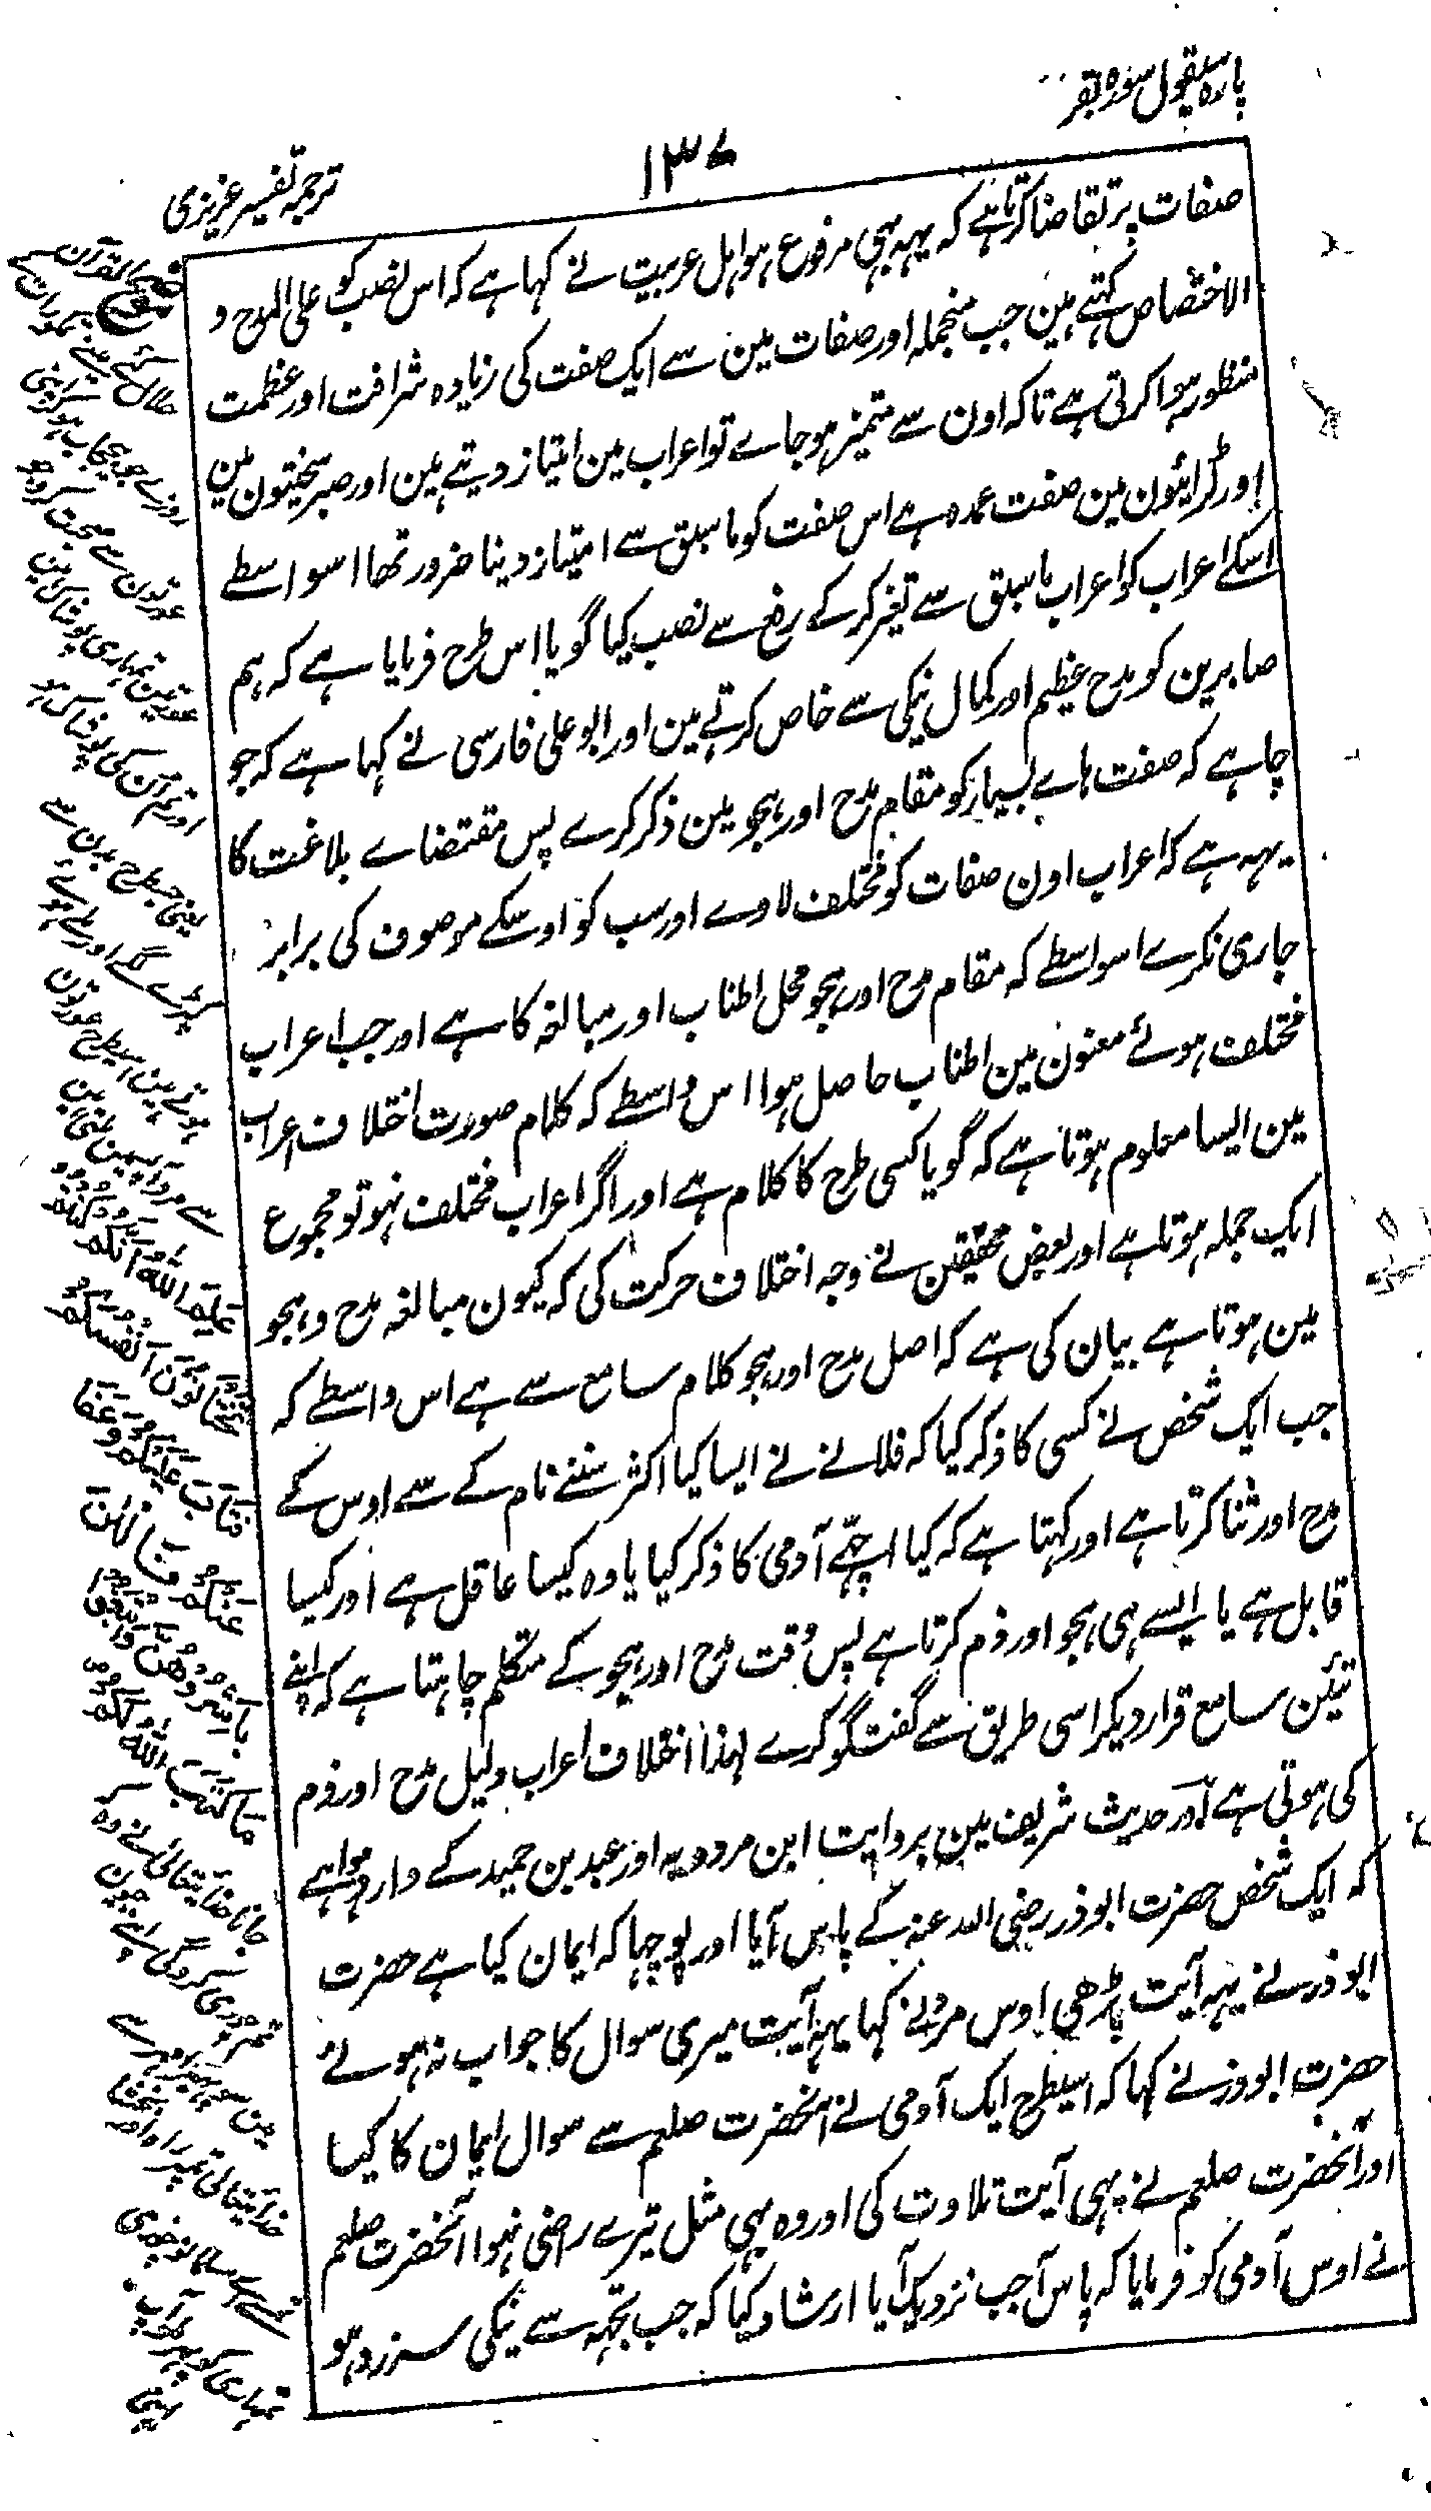 پارہ سیقول سورہ بقر
۱۳۷
ترجمہ تفسیر عزیزی
صفات پر تقاضا کرتا ہے کہ یہہ بہی مرفوع ہو اہل عربیت نے کہا ہے کہ اس نصب کو علی المدح و
الاختصاص کہتے ہین جب منجملہ اور صفات مین سے ایک صفت کی زیادہ شرافت اور عظمت
منظور ہوا کرتی ہے تاکہ اون سے متمیز ہو جاے تو اعراب مین امتیاز دیتے ہین اور صبر سختیون مین
اور لڑائیون مین صفت عمدہ ہے اس صفت کو ماسبق سے امتیاز دینا ضرور تھا اسواسطے
اسکے اعراب کو اعراب ماسبق سے تغیر کر کے رفع سے نصب کیا گویا اس طرح فرمایا ہے کہ ہم
صابرین کو مدح عظیم اور کمال نیکی سے خاص کرتے ہین اور ابو علی فارسی نے کہا ہے کہ جو
چاہے کہ صفت ہاے بسیار کو مقام مدح اور ہجو مین ذکر کرے پس مقتضاے بلاغت کا
یہہ ہے کہ اعراب اون صفات کو مختلف لاوے اور سب کو اوسکے موصوف کی برابر
جاری نکرے اسواسطے کہ مقام مدح اور ہجو محل اطناب اور مبالغہ کا ہے اور جب اعراب
مختلف ہوئے معنون مین اطناب حاصل ہوا اس واسطے کہ کلام صورت اختلاف اعراب
مین ایسا معلوم ہوتا ہے کہ گویا کسی طرح کا کلام ہے اور اگر اعراب مختلف نہو تو مجموع
ایک جملہ ہوتا ہے اور بعض محققین نے وجہ اختلاف حرکت کی کہ کیون مبالغہ مدح و ہجو
مین ہوتا ہے بیان کی ہے کہ اصل مدح اور ہجو کلام سامع سے ہے اس واسطے کہ
جب ایک شخص نے کسی کا ذکر کیا کہ فلانے نے ایسا کیا اکثر سننے نام کے سے اوس کے
مدح اور ثنا کرتا ہے اور کہتا ہے کہ کیا اچھے آدمی کا ذکر کیا یا وہ کیسا عاقل ہے اور کیسا
قابل ہے یا ایسے ہی ہجو اور ذم کرتا ہے پس وقت مدح اور ہجو کے متکلم چاہتا ہے کہ اپنے
تئین سامع قرار دیکر اسی طریق سے گفتگو کرے لہذا اختلاف اعراب دلیل مدح اور ذم
کی ہوتی ہے اور حدیث شریف مین بروایت ابن مردویہ اور عبد بن حمید کے وارد ہوا ہے
کہ ایک شخص حضرت ابوذر رضی اللہ عنہ کے پاس آیا اور پوچہا کہ ایمان کیا ہے حضرت
ابوذر نے یہہ آیت پڑھی اوس مرد نے کہا یہہ آیت میری سوال کا جواب نہ ہوئے
حضرت ابوذر نے کہا کہ اسیطرح ایک آدمی نے آنحضرت صلعم سے سوال ایمان کا کیا
اور آنحضرت صلعم نے یہی آیت تلاوت کی اور وہ بہی مثل تیرے راضی نہوا آنحضرت صلعم
نے اوس آدمی کو فرمایا کہ پاس آ جب نزدیک آیا ارشاد کیا کہ جب تجہہ سے نیکی سرزد ہو
القرآن
حلال کئے
عورتون سے صحبت کرو
عورتین تمہاری پوشاک ہین
اور تم اون کی پوشاک ہو
یعنی جسطرح بدن سے
کپڑے لگے اور ملے ہوئے
ہوتے ہین اسیطرح عورتون
عَلِمَ اللهُ اَنَّكُمْ كُنْتُمْ
تَخْتَانُوْنَ اَنْفُسَكُمْ
فَتَابَ عَلَيْكُمْ وَعَفَا
عَنْكُمْ فَالْاٰنَ
بَاشِرُوْهُنَّ وَابْتَغُوْا
مَا كَتَبَ اللهُ لَكُمْ
جانا خدایتعالی نے کہ